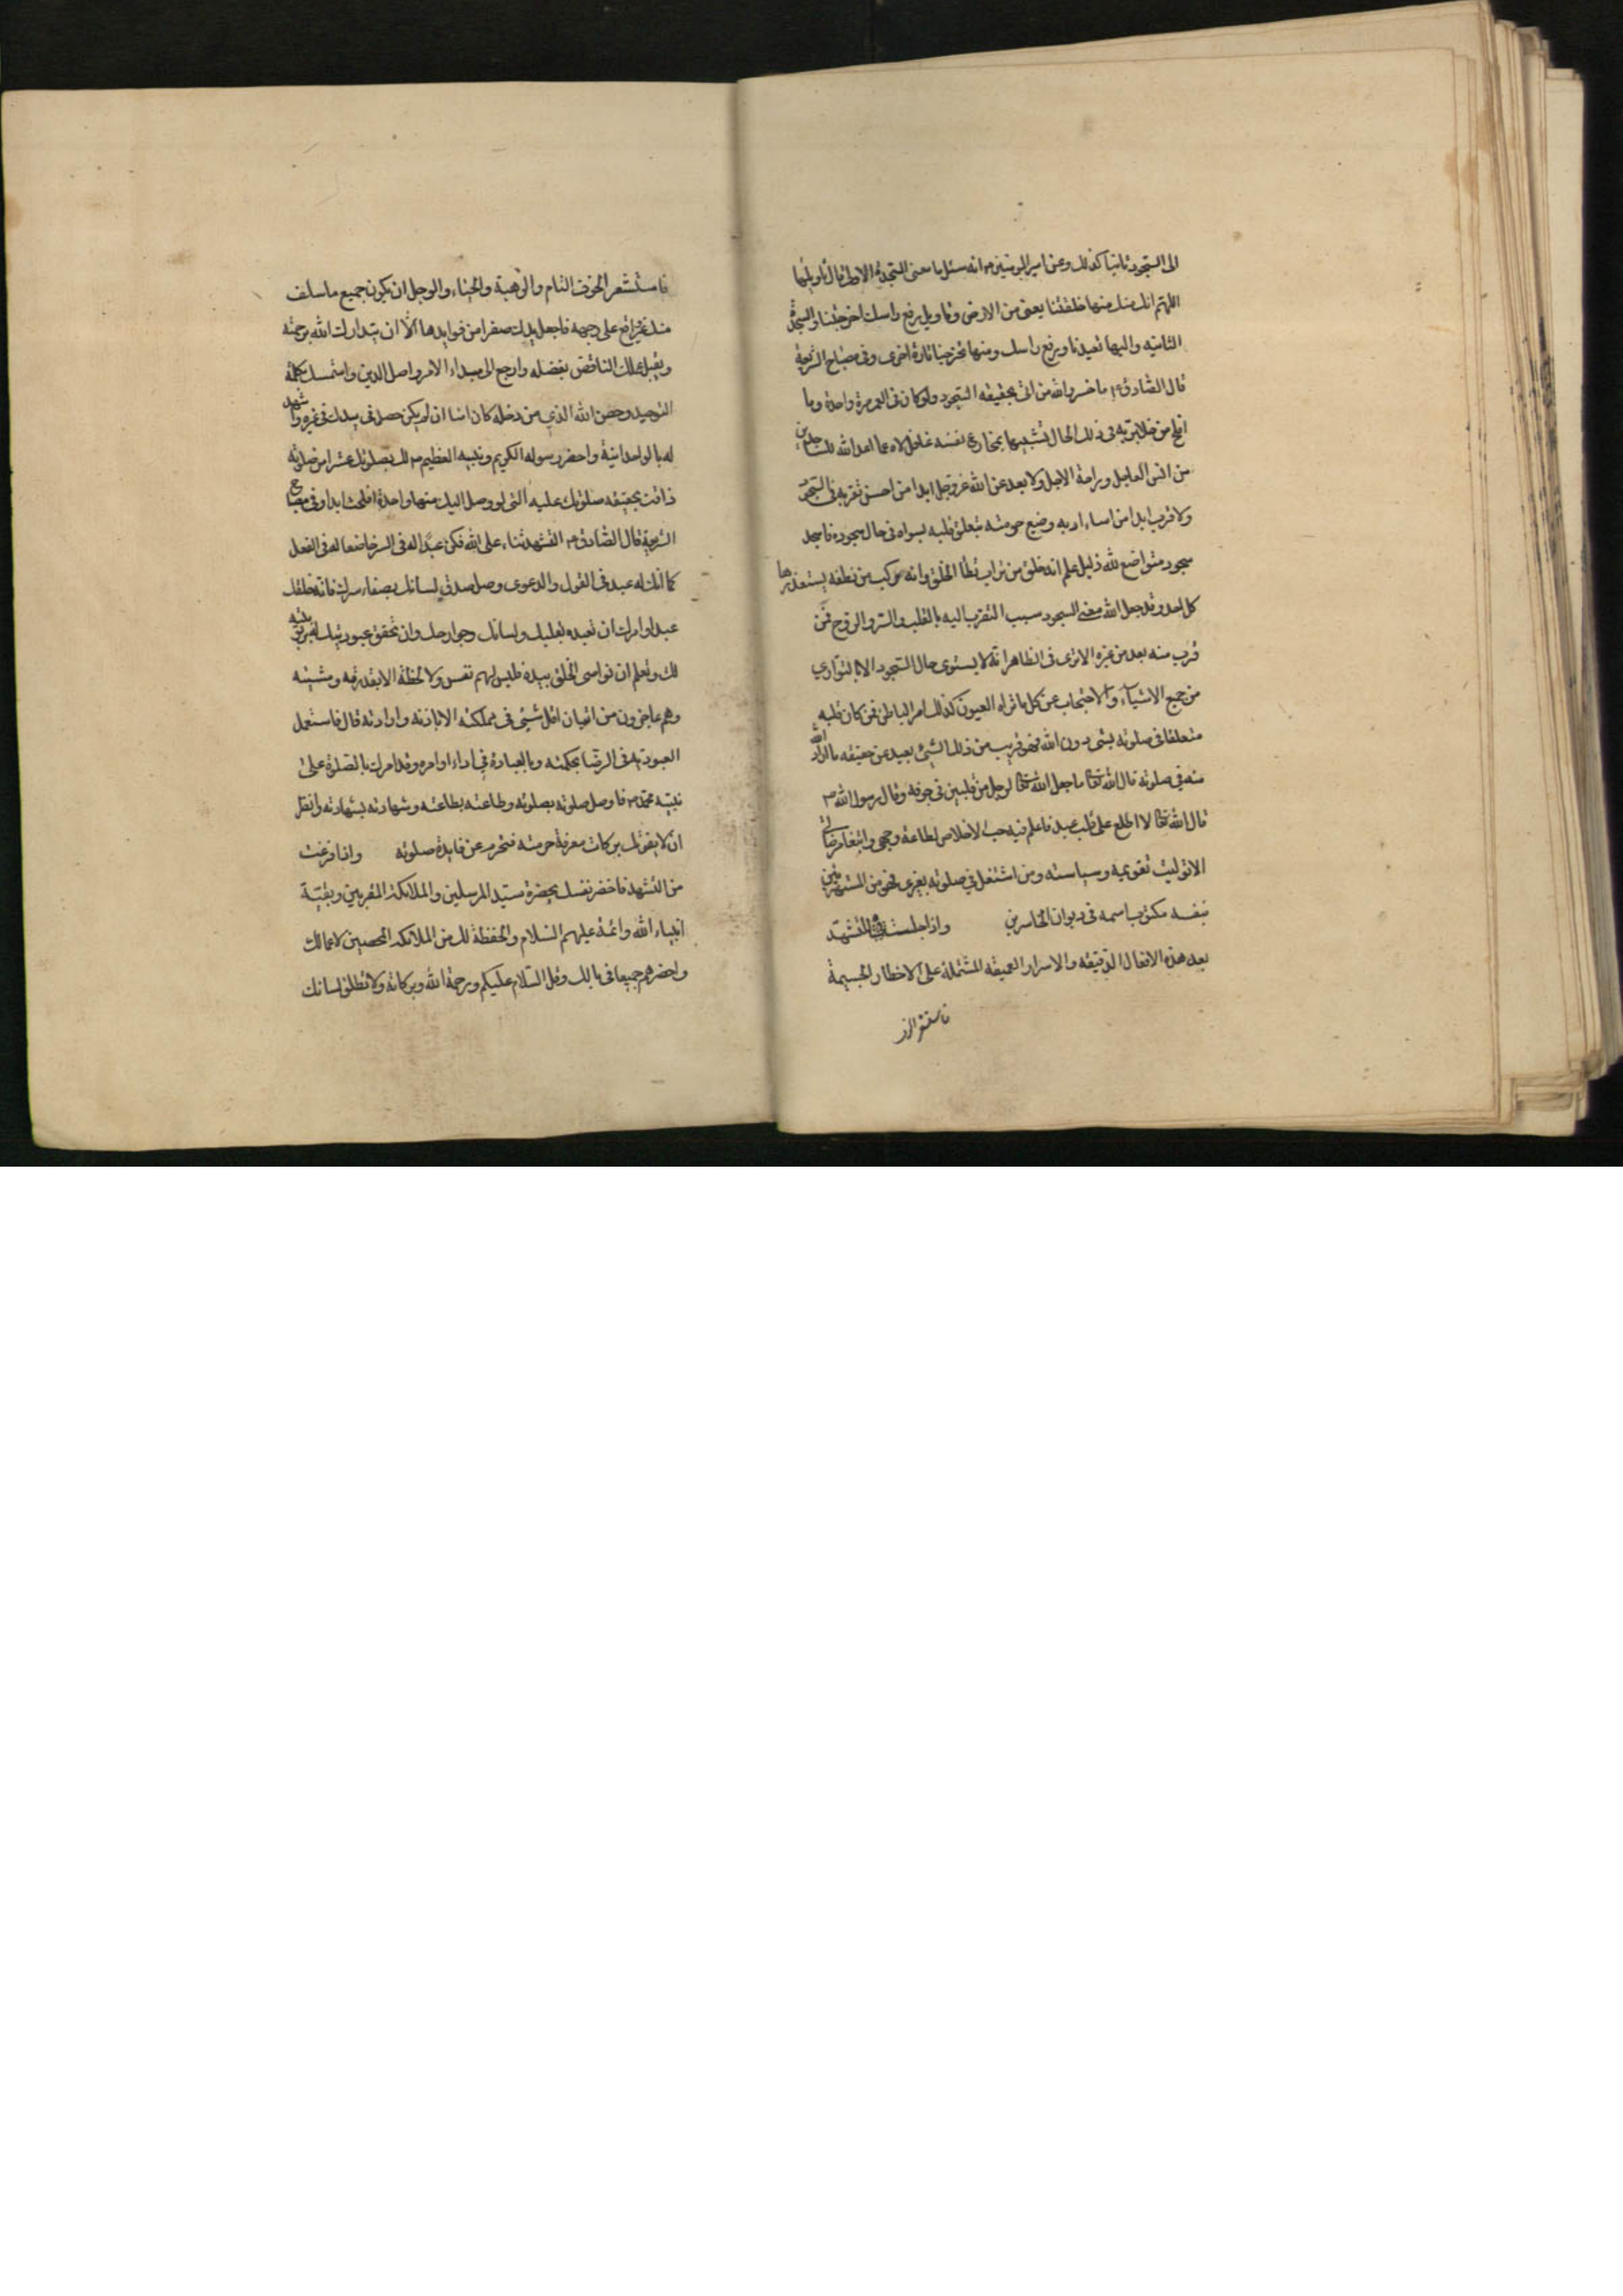 الى السجود ثانيا كذلك وعن امير المومنين م انه سئل ما معنى السجدة الاولى قال تاويلها
اللهم انك منها خلقتنا يعنى من الارض وتاويل رفع راسك اخرجتنا والسجدة
الثانيه واليها تعيدنا ورفع راسك ومنها تخرجنا تارة اخرى وفى مصباح الشريعة
قال الصادق ع ما خسر والله من اتى بحقيقة السجود ولو كان فى العمر مرة واحدة وما
افلح من خلا بربه فى ذلك الحال تشبيها بمخادع نفسه غافل لاه عما اعد الله للساجدين
من انس العاجل وراحة الاجل ولا بعد عن الله عز وجل ابدا من احسن تقربه فى السجود
ولا قرب ابدا من اساء ادبه وضيع حرمته بتعلق قلبه بسواه فى حال سجوده فاسجد
سجود متواضع لله ذليل علم انه خلق من تراب يطأ الخلق وانه ركب من نطفه يستقذرها
كل احد وقد جعل الله معنى السجود سبب التقرب اليه بالقلب والسر والروح فمن
قرب منه بعد من غيره الا ترى فى الظاهر انه لا يستوى حال السجود الا بالتوارى
من جميع الاشيآء والاحتجاب عن كل ما تراه العيون كذلك امر الباطن فمن كان قلبه
متعلقا فى صلوته بشئ دون الله فهو قريب من ذلك الشئ بعيد عن حقيقه ما اراد الله
منه فى صلوته قال الله تعالى ما جعل الله لرجل من قلبين فى جوفه وقال رسول الله ص
قال الله تعالى لا اطلع على قلب عبد فاعلم فيه حب الاخلاص لطاعة وجهى وابتغاء مرضاتى
الا توليت تقويمه وسياسته ومن اشتغل فى صلوته بغيرى فهو من المستهزئين
بنفسه مكتوب اسمه فى ديوان الخاسرين واذا جلست للتشهد
بعد هذه الافعال الدقيقه والاسرار العميقه المشتملة على الاخطار الجسيمة
فاستشعر الخوف
فاستشعر الخوف التام والرهبة والحياء والوجل ان يكون جميع ما سلف
منك غير واقع على وجهه فاجعل يدك صفرا من فوايدها الا ان يتداركك الله برحمته
ويقبل عملك الناقص بفضله وارجع الى مبداء الامر واصل الدين واستمسك بكلمة
التوحيد وحصن الله الذى من دخله كان امنا ان لم يكن حصل فى يدك غيره واشهد
له بالوحدانية واحضر رسوله الكريم ونبيه العظيم ببالك
الشريعة قال الصادق ع التشهد ثناء على الله فكن عبدا له فى السر خاضعا له فى الفعل
كما انك له عبد فى القول والدعوى وصل صدق لسانك بصفاء سرك فانه خلقك
عبدا وامرك ان تعبده بقلبك ولسانك وجوارحك وان تحقق عبوديتك له بربوبيته
لك وتعلم ان نواصى الخلق بيده فليس لهم نفس ولا لحظة الا بقدرته ومشيته
وهم عاجزون من اتيان اقل شئ فى مملكته الا باذنه وارادته قال فاستعمل
العبودية فى الرضا بحكمته وبالعبادة فى اداء اوامره وقد امرك بالصلوة على
نبيه محمد ص فاوصل صلوته بصلوته وطاعته بطاعته وشهادته بشهادته وانظر
ان لا يفوتك بركات معرفة حرمته فتحرم عن فايدة صلوته واذا فرغت
من التشهد فاحضر نفسك بحضرة سيد المرسلين والملائكة المقربين وبقية
انبياء الله وائمته عليهم السلام والحفظة لك من الملائكة المحصين لاعمالك
واحضرهم جميعا فى بالك وقل السلام عليكم ورحمة الله وبركاته ولا تطلق لسانك